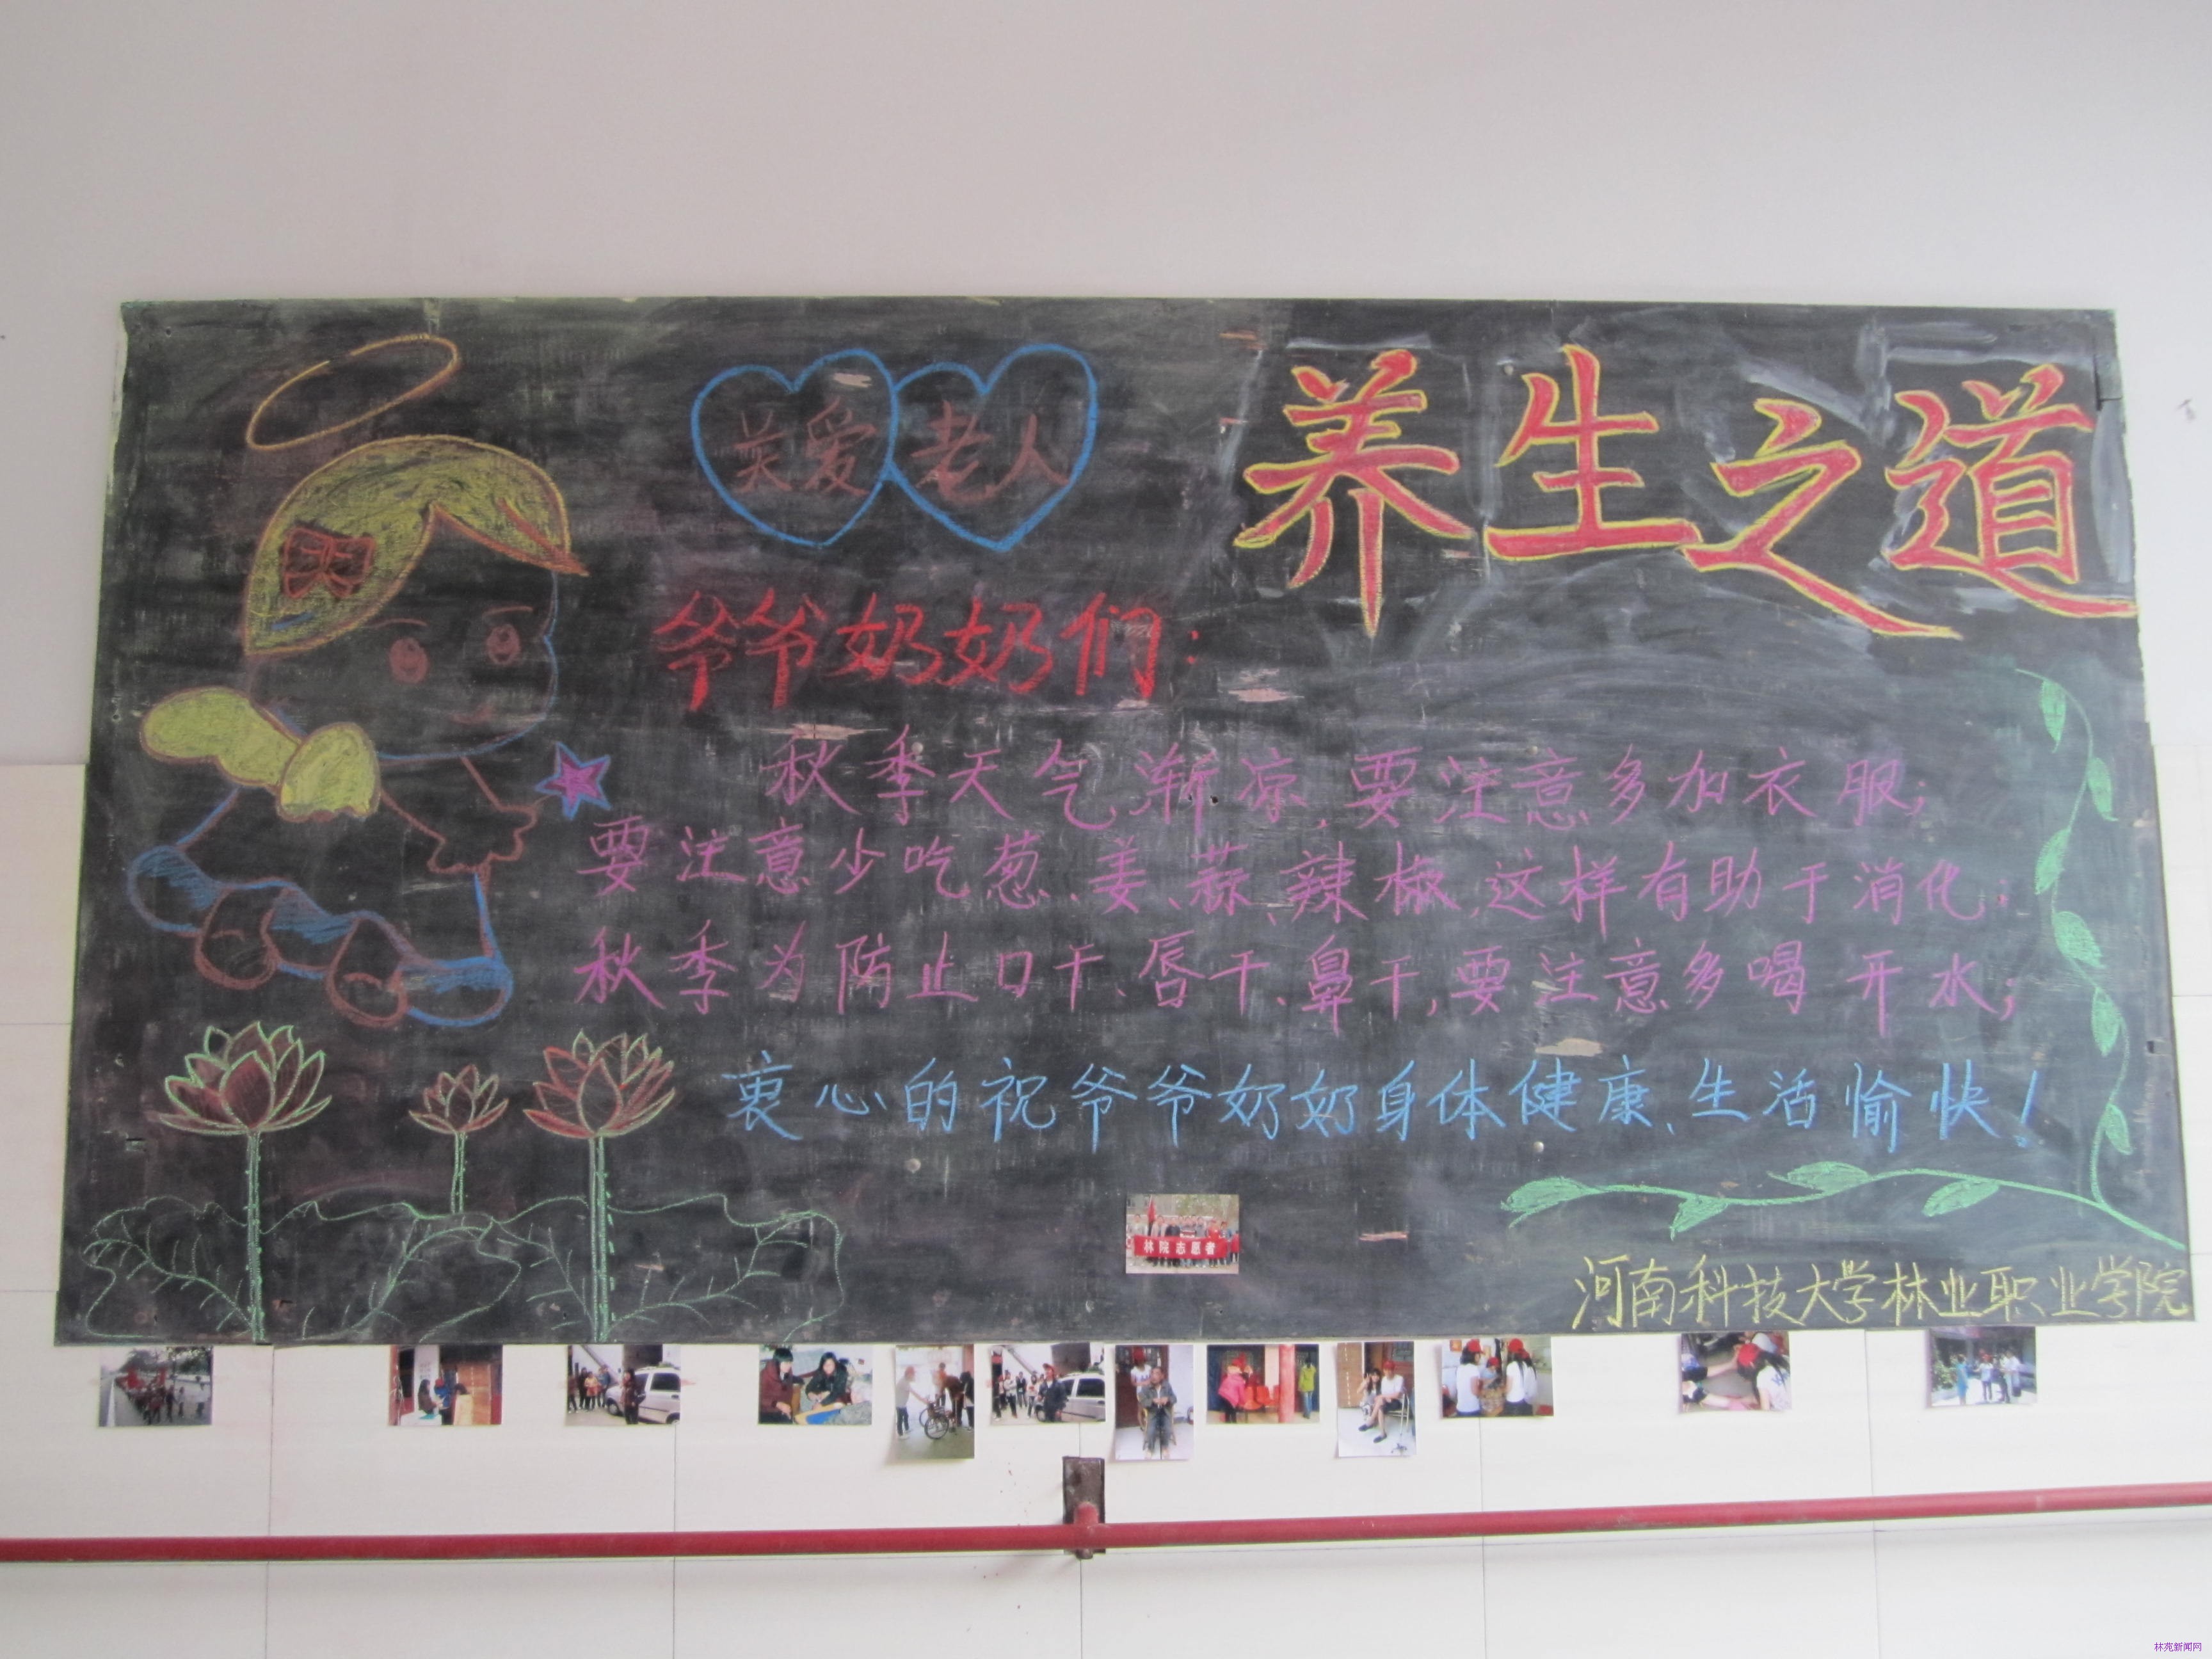 关爱 老人
养生之道
爷爷奶奶们:
秋季天气渐凉,要注意多加衣服;
要注意少吃葱、姜、蒜、辣椒,这样有助于消化;
秋季为防止口干、唇干、鼻干,要注意多喝开水;
衷心的祝爷爷奶奶身体健康、生活愉快!
林院志愿者
河南科技大学林业职业学院
林苑新闻网